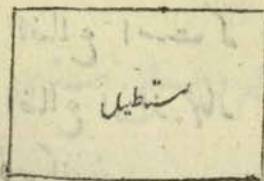 مستطیل